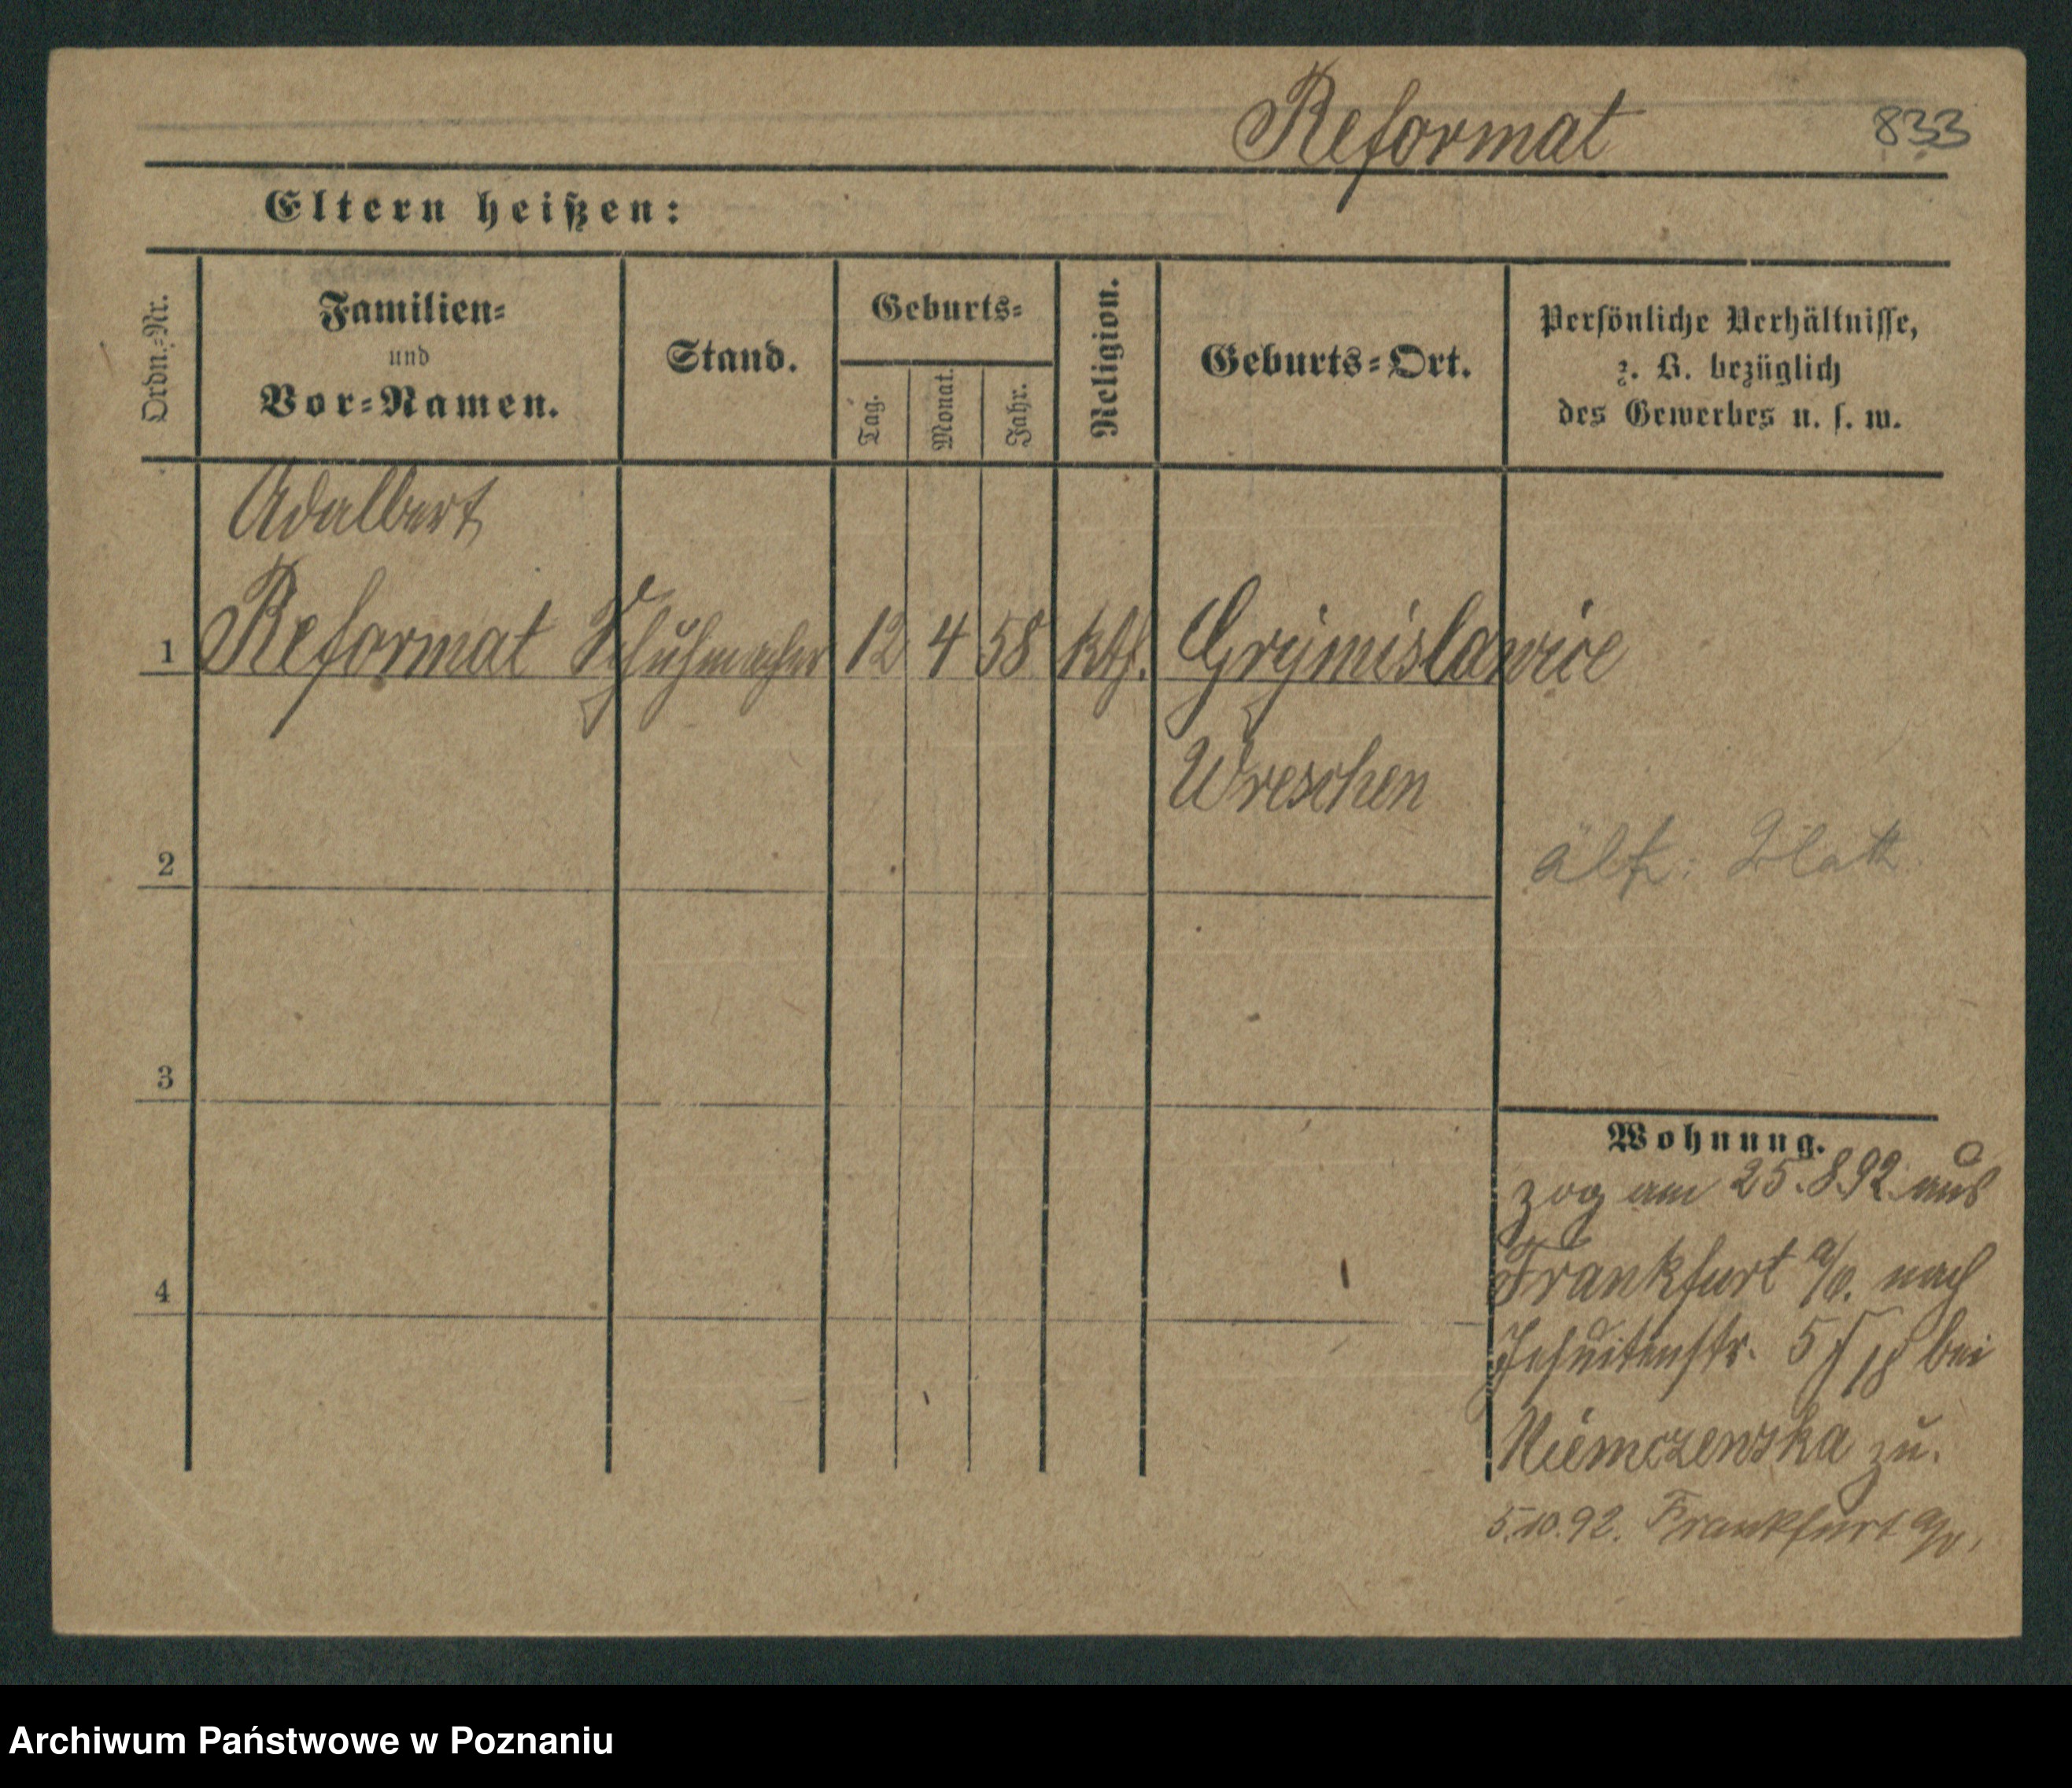 Reformat 833
Eltern heißen:
Ordn.-Nr.
Familien-
und
Vor-Namen.
Stand.
Geburts-
Tag.
Monat.
Jahr.
Religion.
Geburts-Ort.
Persönliche Verhältnisse,
z. B. bezüglich
des Gewerbes u. s. w.
Adalbert
1 Reformat Schuhmacher 12 4 58 kth. Grzymislawice
Wreschen
2
Blatt
3
Wohnung.
zog am 25.8.92 aus
4
Frankfurt a/O. nach
Jesuitenstr. 5 bei
Niemczewska zu.
5.10.92. Frankfurt a/O.
Archiwum Państwowe w Poznaniu